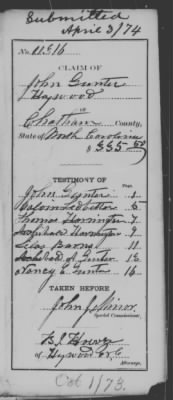 Submitted
April 3/74
No. 11816
CLAIM OF
John Gunter
Haywood
in
Chatham County,
State of North Carolina
$ 335.50
TESTIMONY OF
Page
John Gunter 1
5
Thomas Harrington 7
Harrington 9
Silas Barns
A. Gunter 12
Nancy E. Gunter 16
TAKEN BEFORE
John J. Minor
Special Commissioner.
of Haywood N.C.
Attorney.
Oct 1/73.